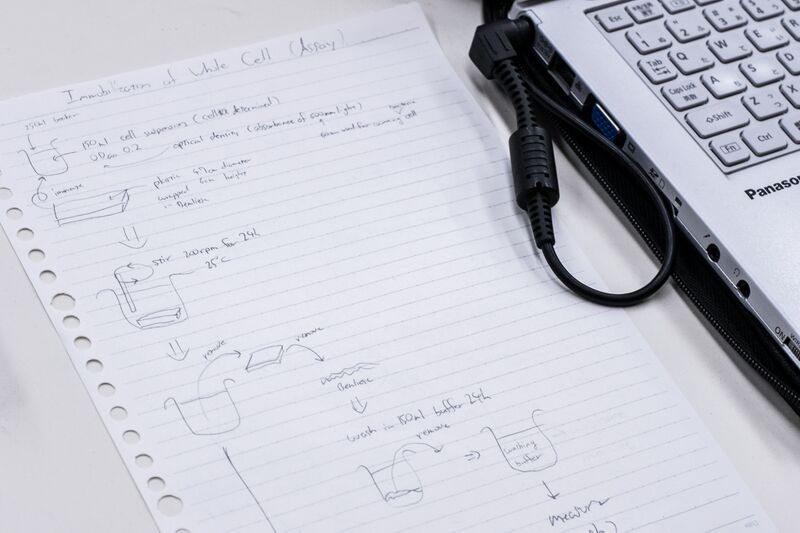 Immobilization of Whole Cell (Assay)
250ml beaker
150ml cell suspension (cell determined)
OD600 0.2
optical density (absorbance of 600nm light)
used for counting cell
immerse
4.7cm diameter
wrapped 4cm height
in Bemliese
stir 200rpm for 24h
25°C
remove
remove
Bemliese
wash in 150ml buffer 24h
remove
washing
buffer
measure
Panason
Esc
Tab
Caps Lock
Shift
Fn
Ctrl
Q
W
E
A
S
D
Z
X
ON